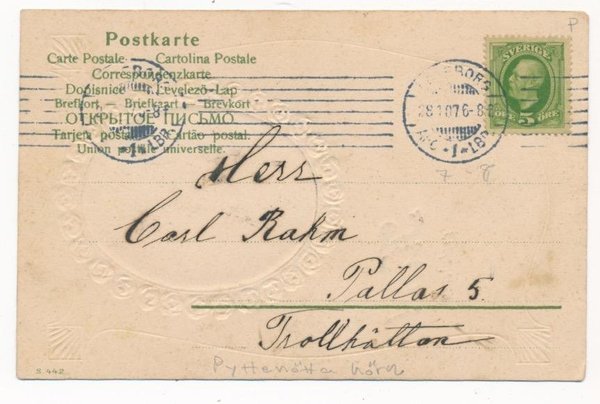 P
Postkarte
Carte Postale – Cartolina Postale
Correspondenzkarte
Dopisnice Levelező-Lap
Brefkort – Briefkaart – Brevkort
ОТКРЫТОЕ ПИСЬМО
Tarjeta postal Cartão postal.
Union postale universelle.
SVERIGE
5 ÖRE
GÖTEBORG
28.1.07.6-8
1 LBR
7 - 8
Herr
Carl Rahm
Pallas 5
Trollhättan
S. 442